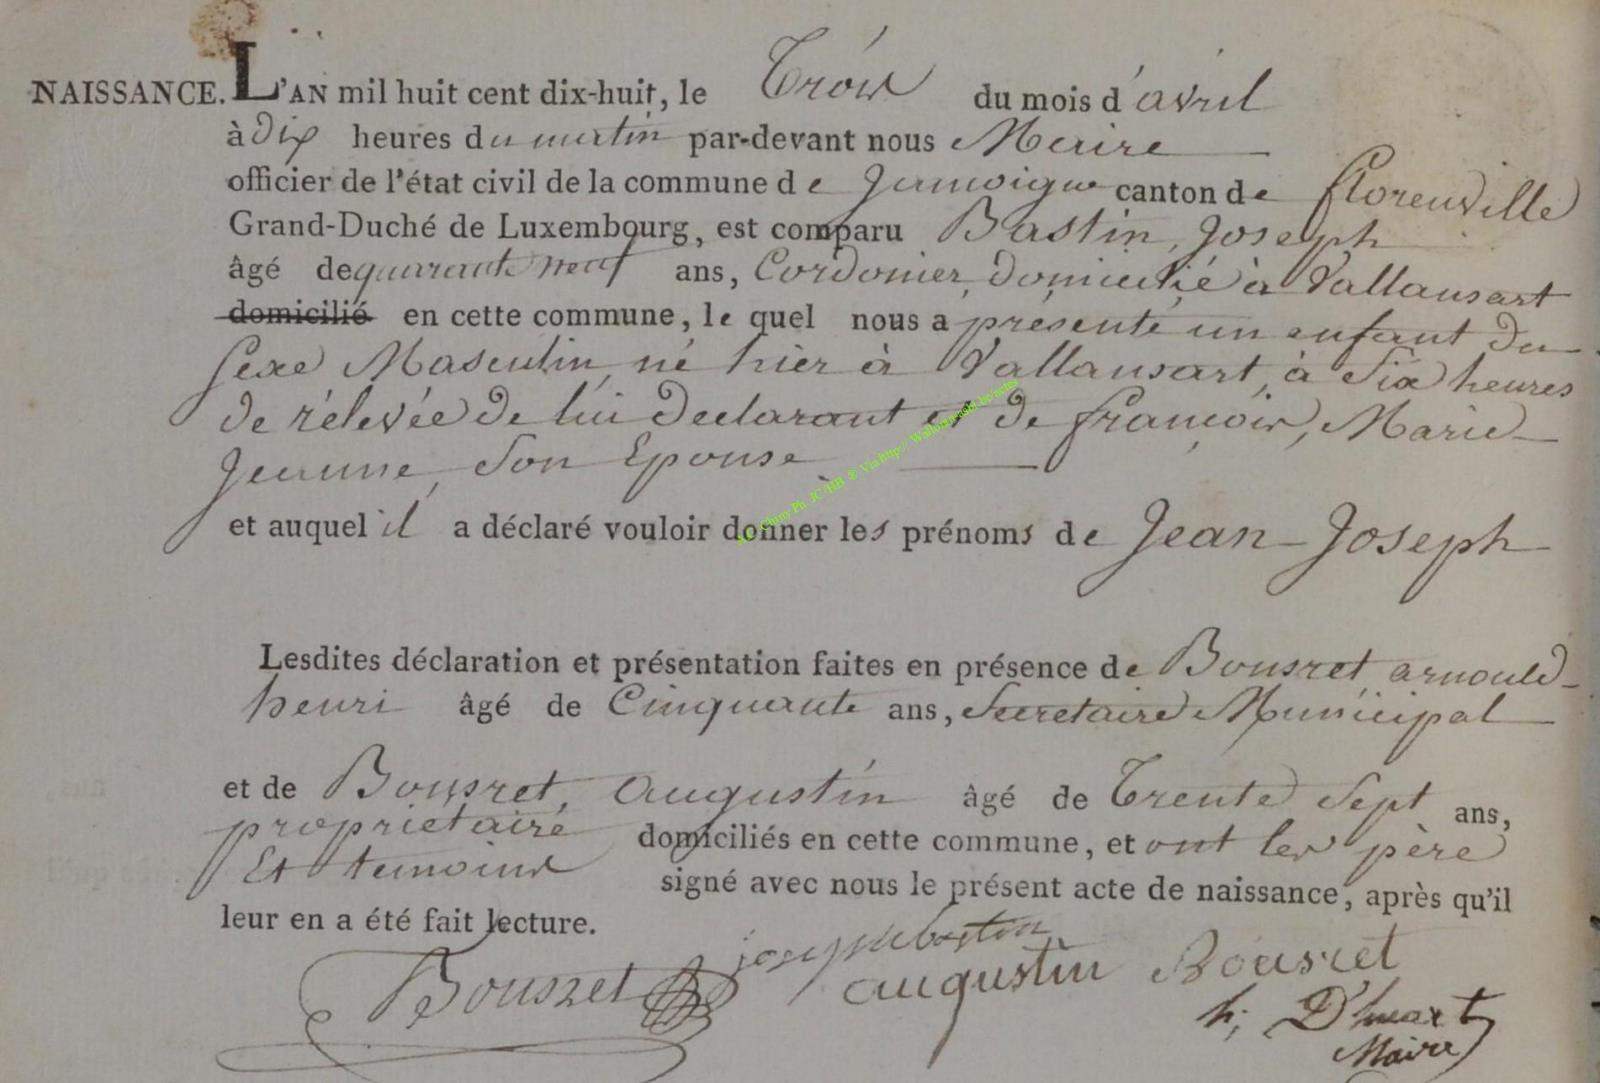 NAISSANCE. L'AN mil huit cent dix-huit, le Trois du mois d'avril
à dix heures du matin par-devant nous Maire
officier de l'état civil de la commune de Jamoigne canton de florenville
Grand-Duché de Luxembourg, est comparu Bastin, Joseph
âgé de quarante neuf ans, Cordonier, domicilié à Vallansart
domicilié en cette commune, le quel nous a présenté un enfant du
sexe Masculin, né hier à Vallansart, à Six heures
de rélevée de lui declarant et de françois, Marie
Jeanne, Son Epouse
et auquel il a déclaré vouloir donner les prénoms de Jean-Joseph
Lesdites déclaration et présentation faites en présence de Bousret arnould-
henri âgé de Cinquante ans, Secretaire Municipal
et de Bousret, augustin âgé de Trente Sept ans,
proprietaire domiciliés en cette commune, et ont les père
Et temoins signé avec nous le présent acte de naissance, après qu'il
leur en a été fait lecture.
joseph bastin
Bousret augustin Bousret
h; D'huart
Maire